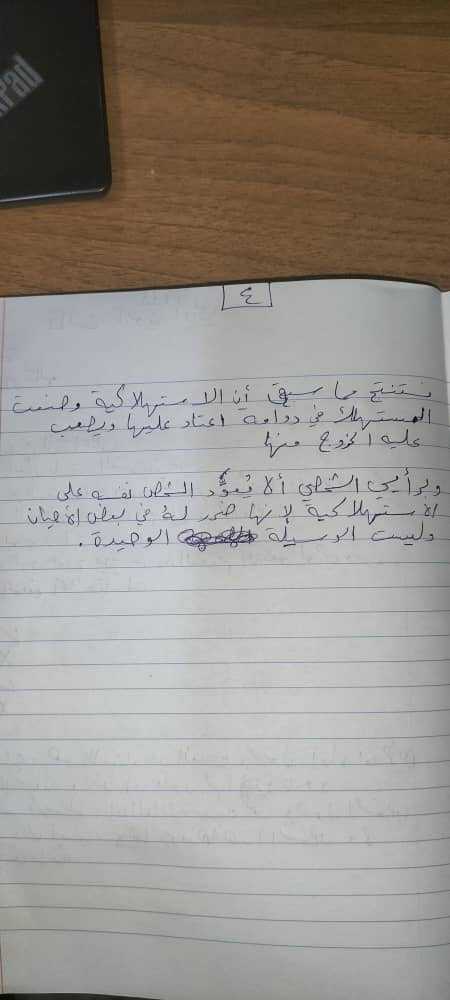 Pad
٤
نستنتج مما سبق أن الاستهلاكية وضعت
المستهلك في دوامة اعتاد عليها ويصعب
عليه الخروج منها
وبرأيي الشخصي ألا يُعوِّد الشخص نفسه على
الاستهلاكية لإنها ضرر له في بعض الأحيان
وليست الوسيلة الوحيدة.